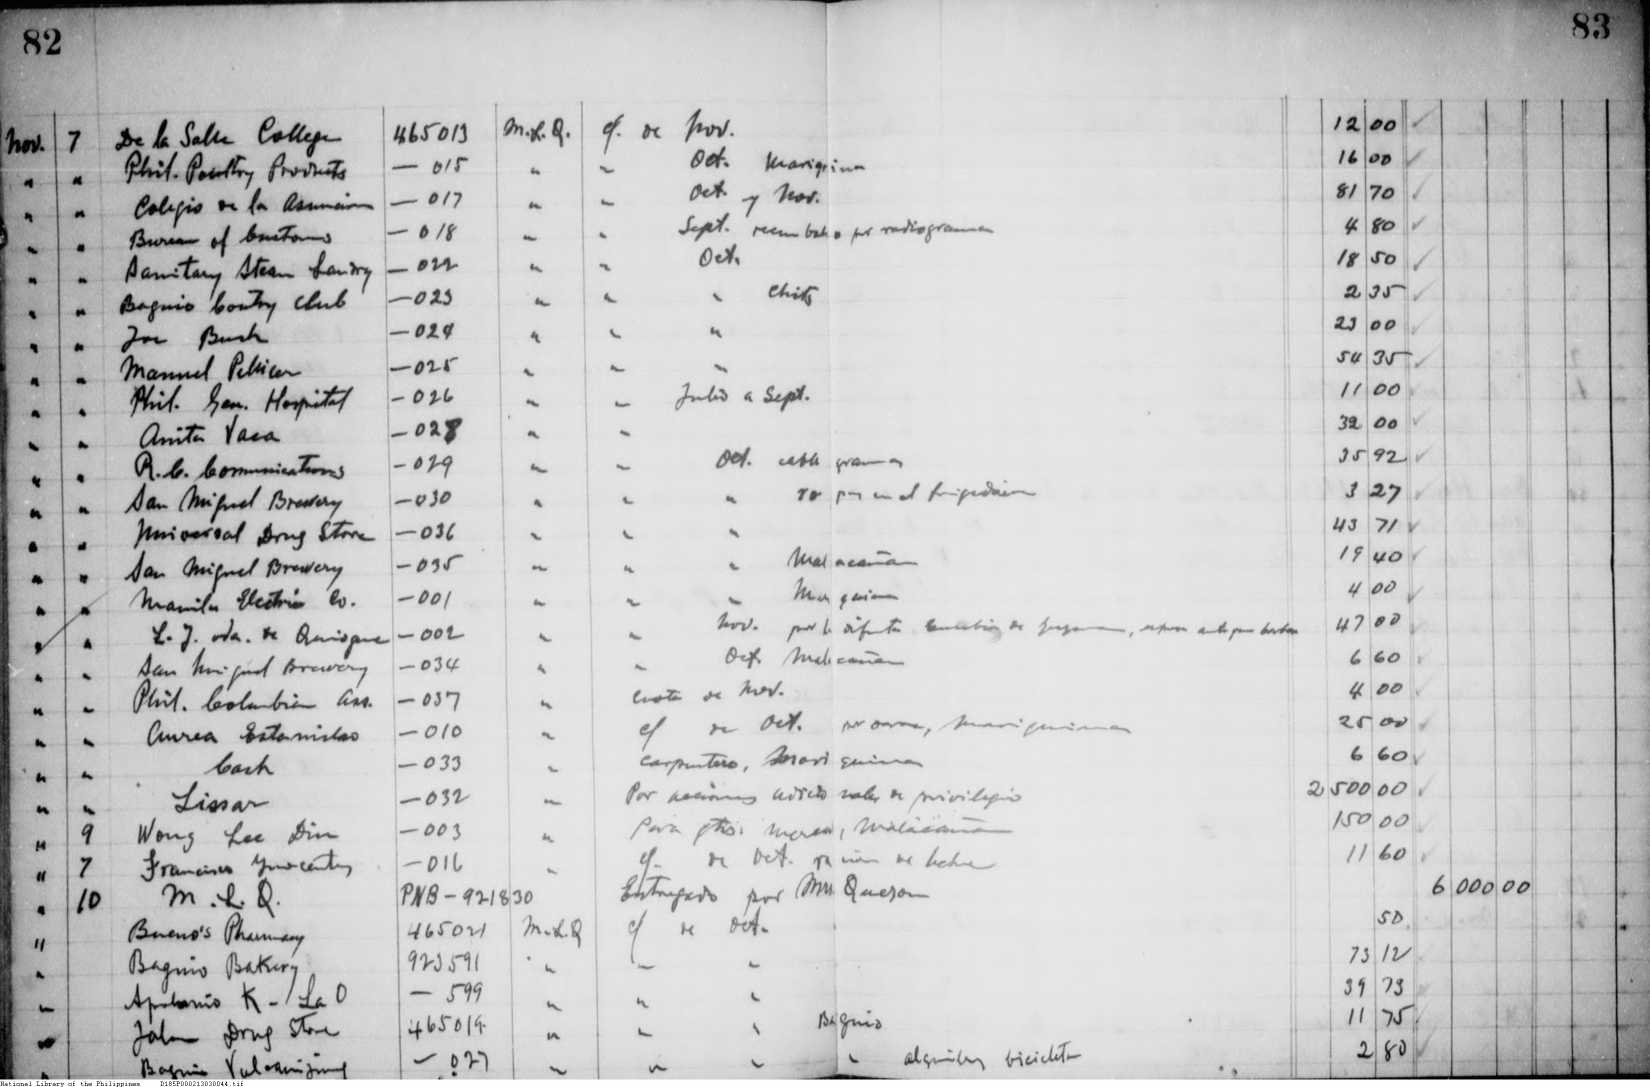 82
83
Nov. 7 De la Salle College 465013 M.L.Q. cf. de Nov. 12 00 ✓
" " Phil. Poultry Products — 015 " " Oct. Mariquina 16 00 ✓
" " Colegio de la Asuncion — 017 " " Oct. y Nov. 81 70 ✓
" " Bureau of Customs — 018 " " Sept. por radiograma 4 80 ✓
" " Sanitary Steam Laundry — 022 " " Oct. 18 50 ✓
" " Baguio Country Club — 023 " " " Chits 2 35 ✓
" " Joe Bush — 024 " " " 23 00 ✓
" " Manuel Pellicer — 025 " " " 54 35 ✓
" " Phil. Gen. Hospital — 026 " " Julio a Sept. 11 00 ✓
" " Anita Vaca — 028 " " 32 00 ✓
" " R.C. Communications — 029 " " Oct. cablegramas 35 92 ✓
" " San Miguel Brewery — 030 " " " 3 27 ✓
" " Universal Drug Store — 036 " " " 43 71 ✓
" " San Miguel Brewery — 035 " " " Malacañan 19 40 ✓
" " Manila Electric Co. — 001 " " " Mariquina 4 00 ✓
" " L. J. vda. de — 002 " " Nov. 47 00 ✓
" " San Miguel Brewery — 034 " " Oct. Malacañan 6 60 ✓
" " Phil. Columbian Ass. — 037 " cuota de Nov. 4 00 ✓
" " Aurea Estanislao — 010 " cf de Oct. Mariquina 25 00 ✓
" " Cash — 033 " carpintero, Mariquina 6 60 ✓
" " Lissar — 032 " Por acciones de privilegio 2 500 00 ✓
" 9 Wong Lee Din — 003 " Para Malacañan 150 00 ✓
" 7 Francisco — 016 " cf. de Oct. de leche 11 60 ✓
" 10 M.L.Q. PNB - 921830 Entregado por Mrs. Quezon 6 000 00
" Bueno's Pharmacy 465021 M.L.Q cf de Oct. 50
" Baguio Bakery 923591 " " " 73 12
" Apolonio K - La O — 599 " " " 39 73
" Drug Store 465019 " " " Baguio 11 75
Baguio Vulcanizing — 027 " " " " alquiler bicicleta 2 80
National Library of the Philippines D185P000213030044.tif